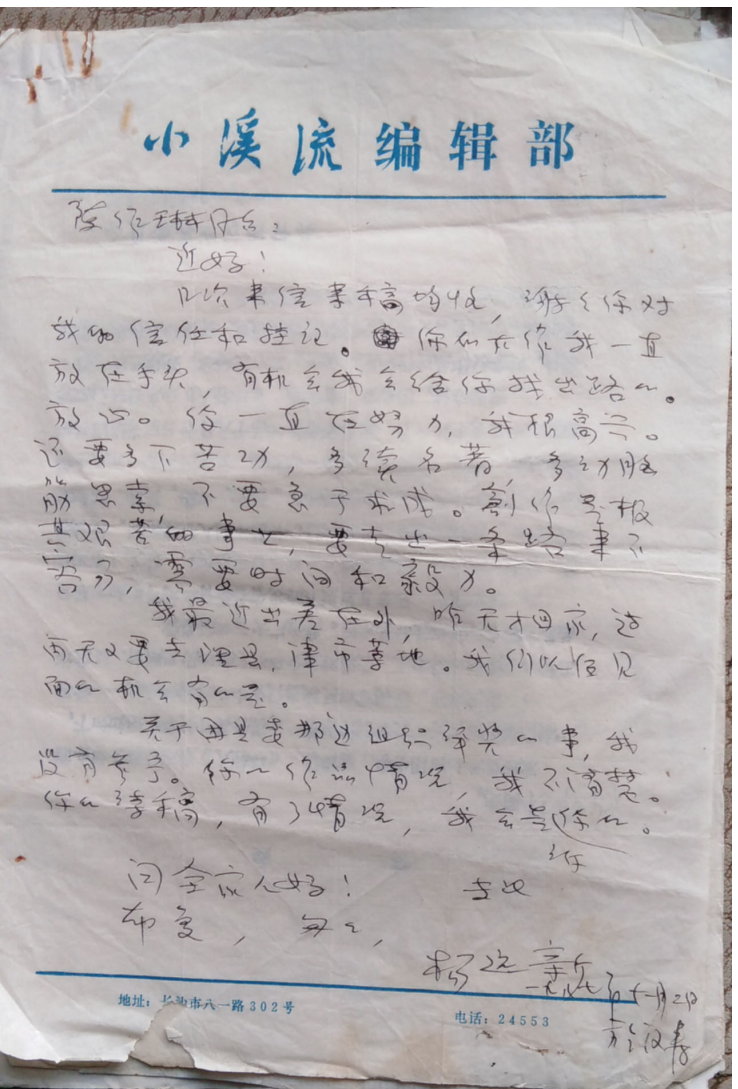 小溪流编辑部
陈作林同志：
近好！
几次来信来稿均收，谢谢你对
我的信任和挂记。你的大作我一直
放在手头，有机会我会给你找出路的。
放心。你一直在努力，我很高兴。
还要多下苦功，多读名著，多动脑
筋思索，不要急于求成。创作是极
其艰苦的事业，要走出一条路来不
容易，需要时间和毅力。
我最近出差在外，昨天才回家，这
两天又要去澧县，津市等地。我们以后见
面的机会有的是。
关于县委那边组织评奖的事，我
没有参予。你的作品情况，我不清楚。
你的诗稿，有了情况，我会告诉你的。
问全家人好！
专此
布复，匆匆，
杨
十一月二日
于汉寿
地址：长沙市八一路302号
电话：24553